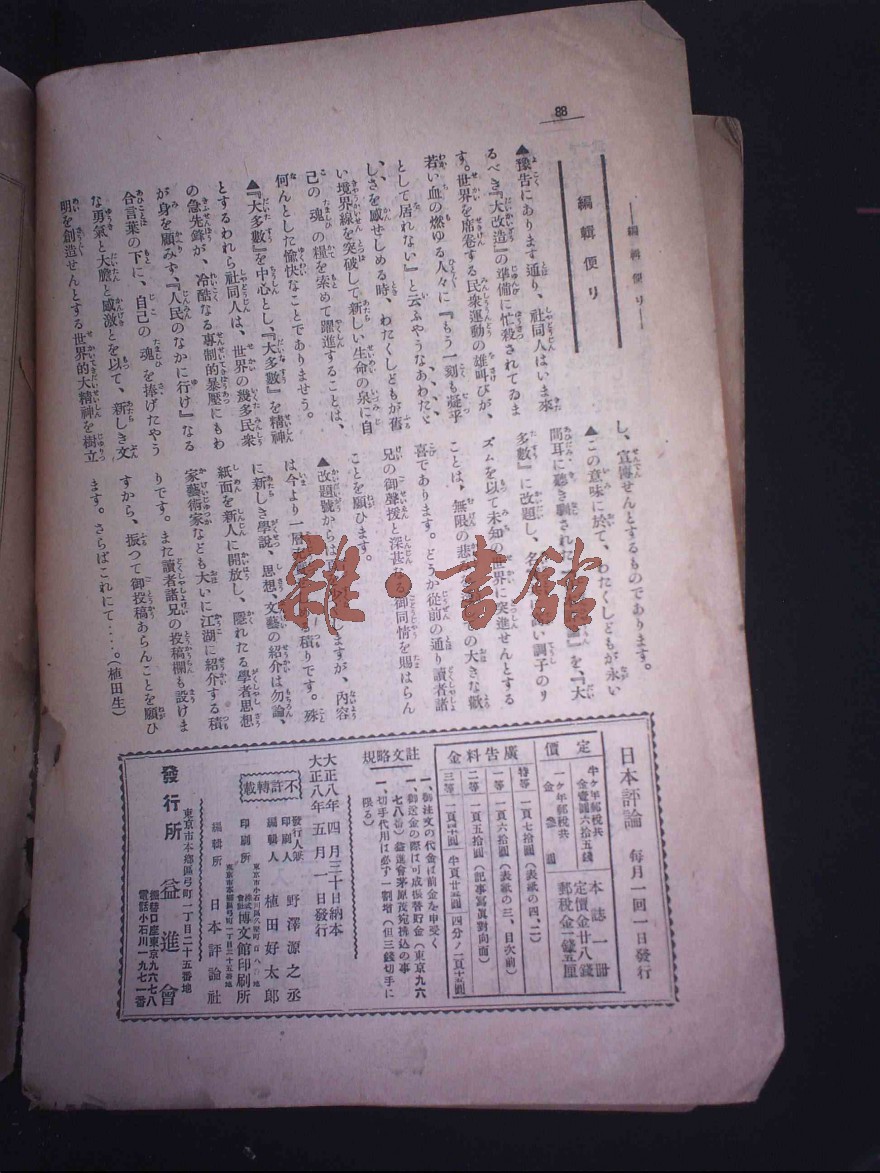 88
——編輯便り——
編輯便り
▲豫告にあります通り、社同人はいま來
るべき『大改造』の準備に忙殺されてゐま
す。世界を席卷する民衆運動の雄叫びが、
若い血の燃ゆる人々に『もう一刻も凝乎
として居れない』と云ふやうなあわたゞ
しさを感ぜしめる時、わたくしどもが舊
い境界線を突破して新しい生命の泉に自
己の魂の糧を索めて躍進することは、
何んとした愉快なことでありませう。
▲『大多數』を中心とし、『大多數』を精神
とするわれら社同人は、世界の幾多民衆
の急先鋒が、冷酷なる專制的暴壓にもわ
が身を顧みず、『人民のなかに行け』なる
合言葉の下に、自己の魂を捧げたやう
な勇氣と大膽と感激とを以て、新しき文
明を創造せんとする世界的大精神を樹立
し、宣傳せんとするものであります。
▲この意味に於て、わたくしどもが永い
間耳に聽き馴された『を、『大
多數』に改題し、名い調子のリ
ズムを以て未知の世界に突進せんとする
ことは、無限の悲の大きな歡
喜であります。どうか從前の通り讀者諸
兄の御聲援と深甚なる御同情を賜はらん
ことを願ひます。
▲改題號からはしますが、內容
は今より一層る積りです。殊
に新しき學說、思想、文藝の紹介は勿論、
紙面を新人に開放し、隱れたる學者思想
家藝術家なども大いに江湖に紹介する積
りです。また讀者諸兄の投稿欄も設けま
すから、振つて御投稿あらんことを願ひ
ます。さらばこれにて‥‥。(植田生)
雜·書館
日本評論 每月一回一日發行
定價
本誌一冊
定價金廿八錢
郵稅金一錢五厘
半ケ年郵稅共
金壹圓六拾五錢
一ケ年郵稅共
金參圓
廣告料金
特等 一頁七拾圓(表紙の四、二)
一等 一頁六拾圓(表紙の三、目次前)
二等 一頁五拾圓(記事寫眞對向面)
三等 一頁四十圓 半頁廿五圓 四分ノ一頁十五圓
註文略規
一、御注文の代金は前金を申受く
一、御送金の際は可成振替貯金(東京九六
七八番)益進會茅原茂宛拂込の事
一、切手代用は必ず一割增(但三錢切手に
限る)
大正八年四月三十日納本
大正八年五月一日發行
不許轉載
發行人兼
印刷人 野澤源之丞
編輯人 植田好太郎
印刷所 博文館印刷所
東京市本鄕區弓町一丁目二十五番地
編輯所 日本評論社
東京市本鄕區弓町一丁目二十五番地
發行所 益進會
振替口座東京九六七八
電話小石川一九七一番